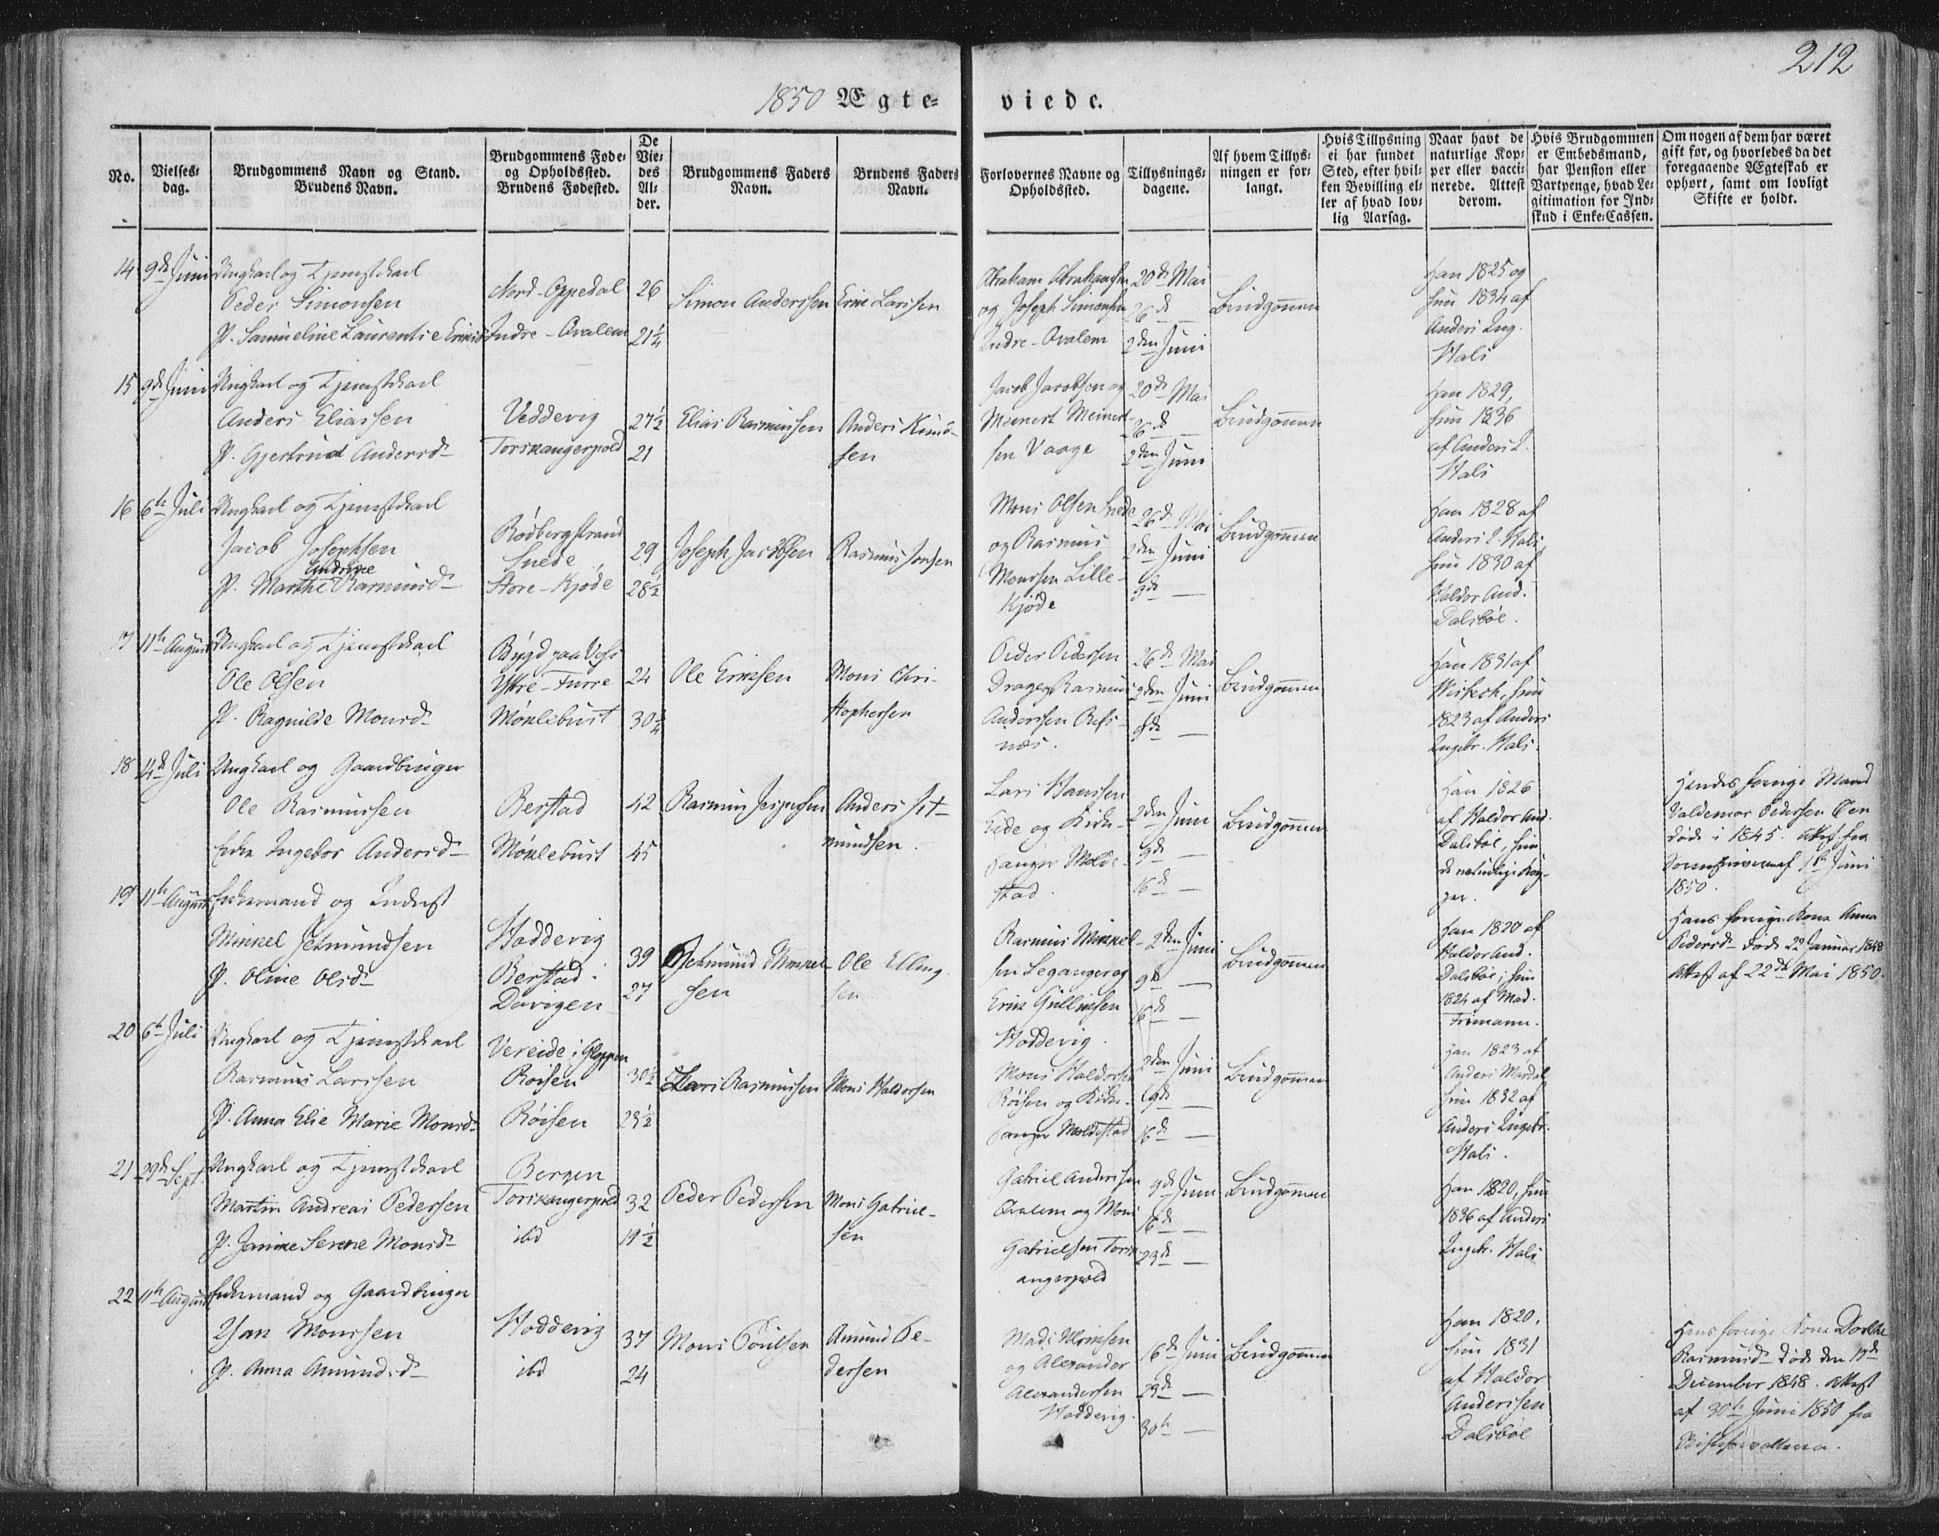 212
1850 Ægte-
viede.
No.
Vielses-
dag.
Brudgommens Navn og Stand.
Brudens Navn.
Brudgommens Føde-
og Opholdsted.
Brudens Fødested.
De
Vie-
des
Al-
der.
Brudgommens Faders
Navn.
Brudens Faders
Navn.
Forlovernes Navne og
Opholdsted.
Tillysnings-
dagene.
Af hvem Tillys-
ningen er for-
langt.
Hvis Tillysning
ei har fundet
Sted, efter hvil-
ken Bevilling el-
ler af hvad lov-
lig Aarsag.
Naar havt de
naturlige Kop-
per eller vacci-
nerede. Attest
derom.
Hvis Brudgommen
er Embedsmand,
har Pension eller
Vartpenge, hvad Le-
gitimation for Ind-
skud i Enke-Cassen.
Om nogen af dem har været
gift før, og hvorledes da det
foregaaende Ægteskab er
ophørt, samt om lovligt
Skifte er holdt.
14 9de Juni
Ungkarl og Tjenestekarl
Peder Simonsen
P. Samueline Laurentie
Nord-Oppedal
Indre-Qvalem
26
21 1/4
Simon Anderssen
Erik Larssen
Abraham Abrahamsen
og Joseph Simonsen
Indre-Qvalem
20de Mai
26de —
2den Juni
Brudgommen
Han 1825 og
hun 1834 af
Anders Ing.
Hals
15 9de Juni
Ungkarl og Tjenestekarl
Anders Eliassen
P. Gjertrud Andersd.
Veddevig
Torskangerpold
27 1/2
21
Elias Rasmussen
Anders Knud-
sen
Jacob Jacobsen og
Meinert Meinert-
sen Vaage
20de Mai
26de —
2den Juni
Brudgommen
Han 1829,
hun 1836
af Anders I.
Hals
16 6te Juli
Ungkarl og Tjenestekarl
Jacob Josephsen
Andrine
P. Marthe Rasmusd.
Rødbergstrand
Snede
Store-Kjøde
29
28 1/2
Joseph Jacobsen
Rasmus Jonsen
Mons Olsen Snede
og Rasmus
Monssen Lille-
Kjøde
26de Mai
2den Juni
9de —
Brudgommen
Han 1828 af
Anders I. Hals
hun 1830 af
Haldor And.
Dalsbøe.
17 11te August
Ungkarl og Tjenestekarl
Ole Olsen
P. Ragnilde Monsd.
Bygd paa Voss
Ytre-Furre
Mønlebust
24
30 1/4
Ole Ericksen
Mons Chri-
stophersen
Peder Pedersen
Drage, Rasmus
Anderssen Refs-
næs.
26de Mai
2den Juni
9de —
Brudgommen
Han 1831 af
hun
1823 af Anders
Ingebr. Hals.
18 14de Juli
Ungkarl og Gaardbruger
Ole Rasmussen
Enke Ingebor Andersd.
Berstad
Mønlebust
42
45
Rasmus Jespersen
Anders Jet-
mundsen.
Lars Hanssen
Eide og Kirke-
sanger Molde-
stad.
2den Juni
9de —
16de —
Brudgommen
Han 1826
af Haldor And.
Dalsbøe, hun
de naturlige Kop-
per.
Hendes forrige Mand
Valdemar Pedersen
døde i 1845. Attest fra
Sorenskriveren af Juni
1850.
19 11te August
Enkemand og Inderst
Mikkel Jetmundsen
P. Oline Olsd.
Hoddevig
Berstad.
Davigen
39
27
Jetmund Mikkel-
sen
Ole Elling-
sen
Rasmus Mikkel-
sen Leganger og
Erik Gullaksen
Hoddevig.
2den Juni
9de —
16de —
Brudgommen
Han 1820 af
Haldor And.
Dalsbøe, hun
1824 af Mad.
Friemann.
Hans forrige Kone Anna
Pedersd. døde 22 Januar 1848
Attest af 22de Mai 1850.
20 6te Juli
Ungkarl og Tjenestekarl
Rasmus Larssen
P. Anna Elie Marie Monsd.
Vereide i Gloppen
Røisen
Røisen
30 1/2
23 1/2
Lars Rasmussen
Mons Haldorsen
Mons Haldorsen
Røisen og Kirke-
sanger Moldestad
2den Juni
9de —
16de —
Brudgommen
Han 1823 af
Anders Mardal,
hun 1832 af
Anders Ingebr.
Hals.
21 29de Sept.
Ungkarl og Tjenestekarl
Martin Andreas Pedersen
P. Janike Serene Monsd.
Bergen
Torskangerpold
ibd
32
19 1/2
Peder Pedersen
Mons Gabriel-
sen
Gabriel Anderssen
Qvalem og Mons
Gabrielsen Torsk-
angerpold
9de Juni
16de —
23de —
Brudgommen
Han 1820, hun
1836 af Anders
Ingebr. Hals
22 11te August
Enkemand og Gaardbruger
Isak Monssen
P. Anna Amundsd.
Hoddevig
ibd
37
24
Mons Poulsen
Amund Pe-
dersen
Mads
og Alexander
Alexandersen
Hoddevig.
16de Juni
23de —
30te —
Brudgommen
Han 1820,
hun 1831
af Haldor
Anderssen
Dalsbøe
Hans forrige Kone Dorthe
Rasmusd. døde den 17de
December 1848. Attest
af 30te Juni 1850 fra